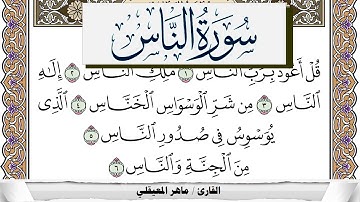 سُورَةُ النَّاسِ
قُلْ أَعُوذُ بِرَبِّ النَّاسِ ١ مَلِكِ النَّاسِ ٢ إِلَٰهِ
النَّاسِ ٣ مِن شَرِّ الْوَسْوَاسِ الْخَنَّاسِ ٤ الَّذِي
يُوَسْوِسُ فِي صُدُورِ النَّاسِ ٥
مِنَ الْجِنَّةِ وَالنَّاسِ ٦
القارئ / ماهر المعيقلي